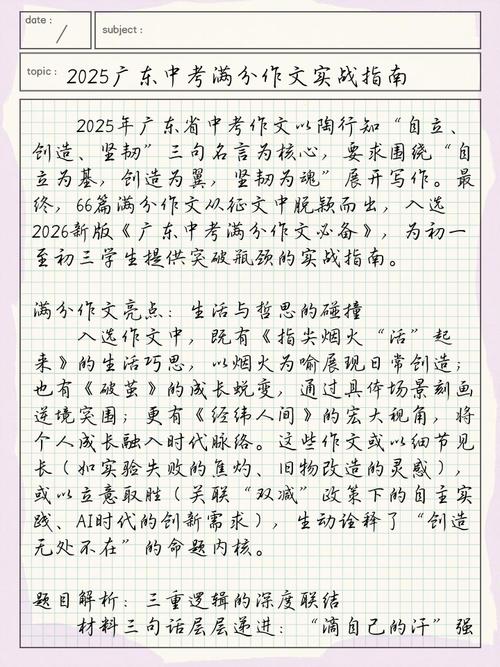 date :
subject:
topic: 2025广东中考满分作文实战指南
2025年广东省中考作文以陶行知“自立、
创造、坚韧”三句名言为核心，要求围绕“自
立为基，创造为翼，坚韧为魂”展开写作。最
终，66篇满分作文从征文中脱颖而出，入选
2026新版《广东中考满分作文必备》，为初一
至初三学生提供突破瓶颈的实战指南。
满分作文亮点：生活与哲思的碰撞
入选作文中，既有《指尖烟火“活”起
来》的生活巧思，以烟火为喻展现日常创造；
也有《破茧》的成长蜕变，通过具体场景刻画
逆境突围；更有《经纬人间》的宏大视角，将
个人成长融入时代脉络。这些作文或以细节见
长（如实验失败的焦灼、旧物改造的灵感），
或以立意取胜（关联“双减”政策下的自主实
践、AI时代的创新需求），生动诠释了“创造
无处不在”的命题内核。
题目解析：三重逻辑的深度联结
材料三句话层层递进：“滴自己的汗”强